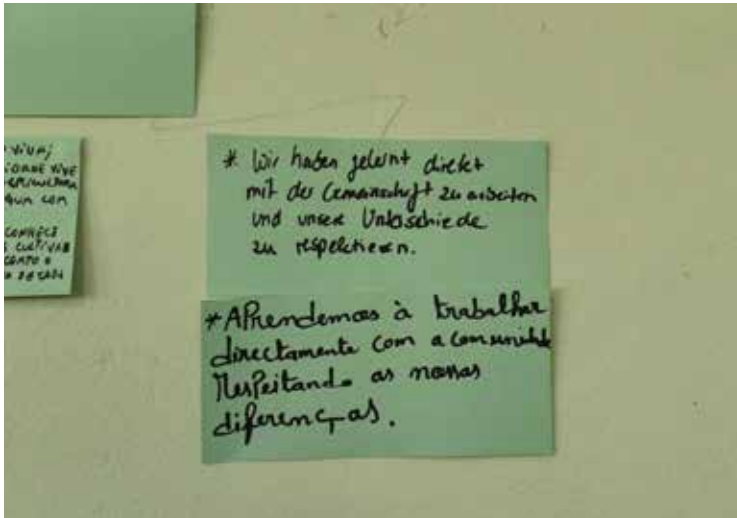 VIVA,
VIVE
COM
CONHECE
CULTIVAR
* Wir haben gelernt direkt
mit der Gemeinschaft zu arbeiten
und unsere Unterschiede
zu respektieren.
* APrendemos à trabalhar
directamente com a comunidade
ResPeitando as nossas
diferenças.